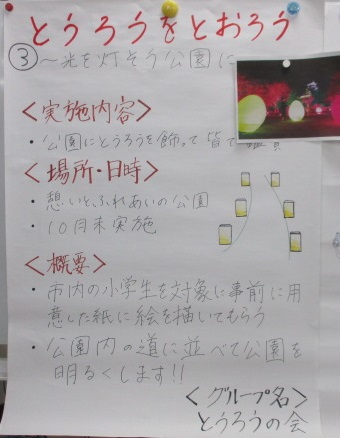 とうろうをとおろう
③～光を灯そう公園に
<実施内容>
・公園にとうろうを飾って皆で
<場所・日時>
・憩いとふれあいの公園
・10月末実施
<概要>
・市内の小学生を対象に事前に用
意した紙に絵を描いてもらう
・公園内の道に並べて公園を
明るくします!!
<グループ名>
とうろうの会